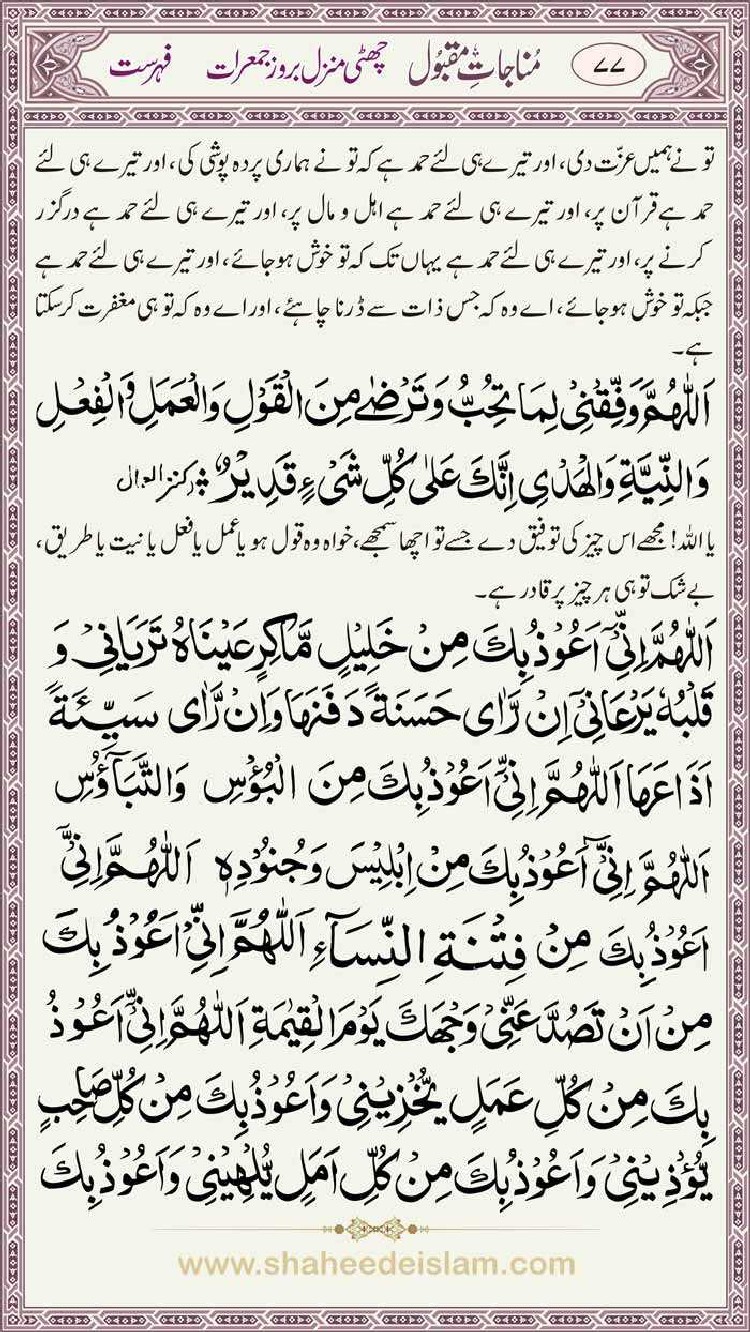 ۷۷ مُناجاتِ مقبُول چھٹی منزل بروز جمعرات فہرست
تو نے ہمیں عزّت دی، اور تیرے ہی لئے حمد ہے کہ تو نے ہماری پردہ پوشی کی، اور تیرے ہی لئے
حمد ہے قرآن پر، اور تیرے ہی لئے حمد ہے اہل و مال پر، اور تیرے ہی لئے حمد ہے درگزر
کرنے پر، اور تیرے ہی لئے حمد ہے یہاں تک کہ تو خوش ہوجائے، اور تیرے ہی لئے حمد ہے
جبکہ تو خوش ہوجائے، اے وہ کہ جس ذات سے ڈرنا چاہئے، اور اے وہ کہ تو ہی مغفرت کرسکتا
ہے۔
اَللّٰهُمَّ وَفِّقْنِیْ لِمَا تُحِبُّ وَتَرْضٰی مِنَ الْقَوْلِ وَالْعَمَلِ وَالْفِعْلِ
وَالنِّیَّةِ وَالْهَدْیِ اِنَّكَ عَلٰی كُلِّ شَیْءٍ قَدِیْرٌ (کنز العمال
یا اللہ! مجھے اس چیز کی توفیق دے جسے تو اچھا سمجھے، خواہ وہ قول ہو یا عمل یا فعل یا نیت یا طریق،
بے شک تو ہی ہر چیز پر قادر ہے۔
اَللّٰهُمَّ اِنِّیْٓ اَعُوْذُ بِكَ مِنْ خَلِیْلٍ مَّاكِرٍ عَیْنَاهُ تَرَیَانِیْ وَ
قَلْبُهٗ یَرْعَانِیْٓ اِنْ رَّاٰی حَسَنَةً دَفَنَهَا وَاِنْ رَّاٰی سَیِّئَةً
اَذَاعَهَا اَللّٰهُمَّ اِنِّیْٓ اَعُوْذُ بِكَ مِنَ الْبُؤْسِ وَالتَّبَآؤُسِ
اَللّٰهُمَّ اِنِّیْٓ اَعُوْذُ بِكَ مِنْ اِبْلِیْسَ وَجُنُوْدِهٖ اَللّٰهُمَّ اِنِّیْٓ
اَعُوْذُ بِكَ مِنْ فِتْنَةِ النِّسَآءِ اَللّٰهُمَّ اِنِّیْٓ اَعُوْذُ بِكَ
مِنْ اَنْ تَصُدَّ عَنِّیْ وَجْهَكَ یَوْمَ الْقِیٰمَةِ اَللّٰهُمَّ اِنِّیْٓ اَعُوْذُ
بِكَ مِنْ كُلِّ عَمَلٍ یُّخْزِیْنِیْ وَاَعُوْذُ بِكَ مِنْ كُلِّ صَاحِبٍ
یُّؤْذِیْنِیْ وَاَعُوْذُ بِكَ مِنْ كُلِّ اَمَلٍ یُّلْهِیْنِیْ وَاَعُوْذُ بِكَ
www.shaheedeislam.com